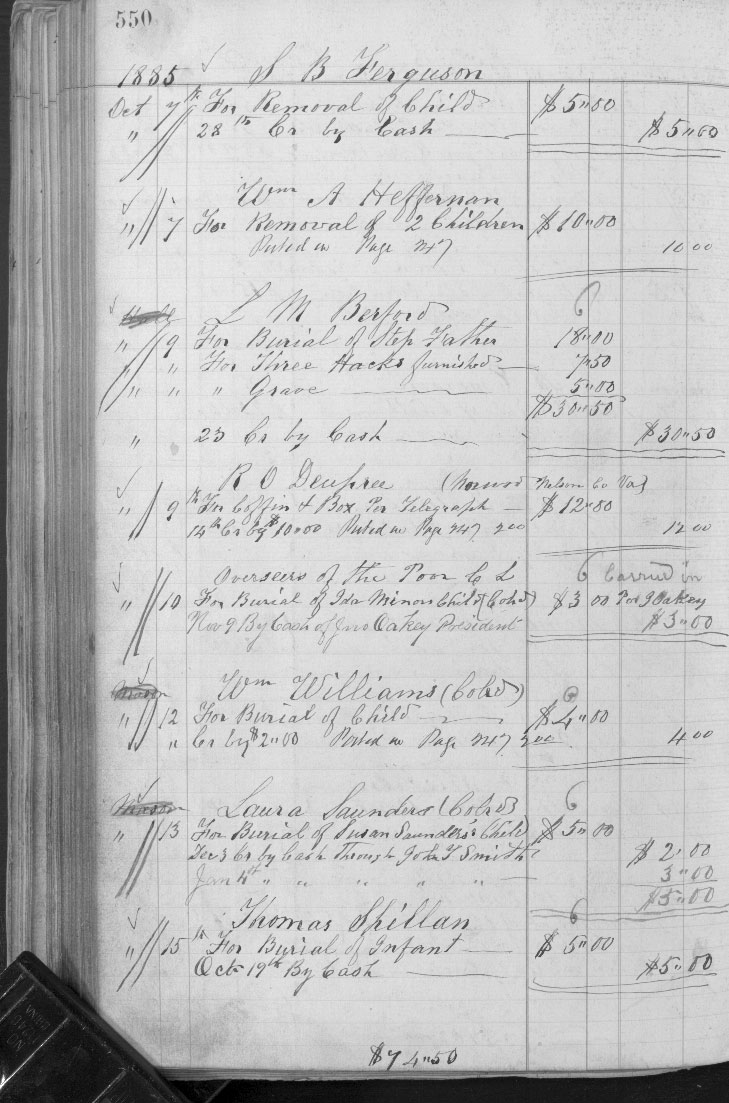 550
1885 S B Ferguson
Oct 7th For Removal of Child $5"00
" 28th Cr by Cash $5"00
Wm A Heffernan
" 7 For Removal of 2 Children $10"00
Posted on Page 247 10 00
L M Berford
" 9 For Burial of Step Father 18"00
" " For Three Hacks furnished 7"50
" " " Grave 5"00
$30"50
" 23 Cr by Cash $30"50
R O Deupree ( Nelson Co Va)
" 9th For Coffin & Box Per Telegraph $12"00
14th Cr by $10"00 Posted on Page 247 2 00 12 00
Overseers of the Poor C L 6 Carried in
" 10 For Burial of Ida Minors Child (Cold) $3 00 For J Oakey
Nov 9 By Cash of Jno Oakey President $3"00
Wm Williams (Cold) 6
" 12 For Burial of Child $4"00
" " Cr by $2"00 Posted on Page 247 2 00 4 00
Laura Saunders (Cold) 6
" 13 For Burial of Susan Saunders Child $5"00
Dec 3 Cr by Cash Through John T Smith $2"00
Jan 4th " " " " " 3"00
$5"00
Thomas Spillan 6
" 15th For Burial of Infant $5"00
Oct 19th By Cash $5"00
$74"50